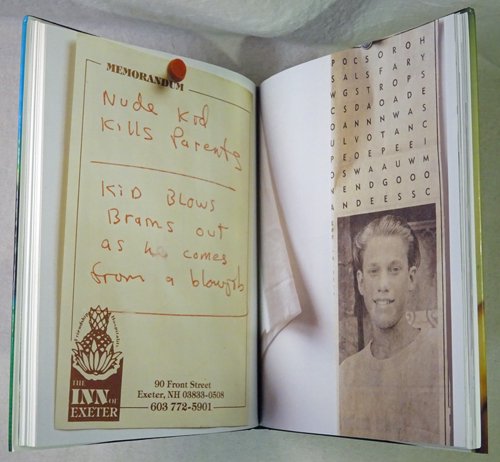 MEMORANDUM
Nude Kid
Kills Parents
Kid Blows
Brains out
as he comes
from a blowjob
Friendship Hospitality
THE
INN OF
EXETER
90 Front Street
Exeter, NH 03833-0508
603 772-5901
POCSOROH
SALSFARY
WGSTROPS